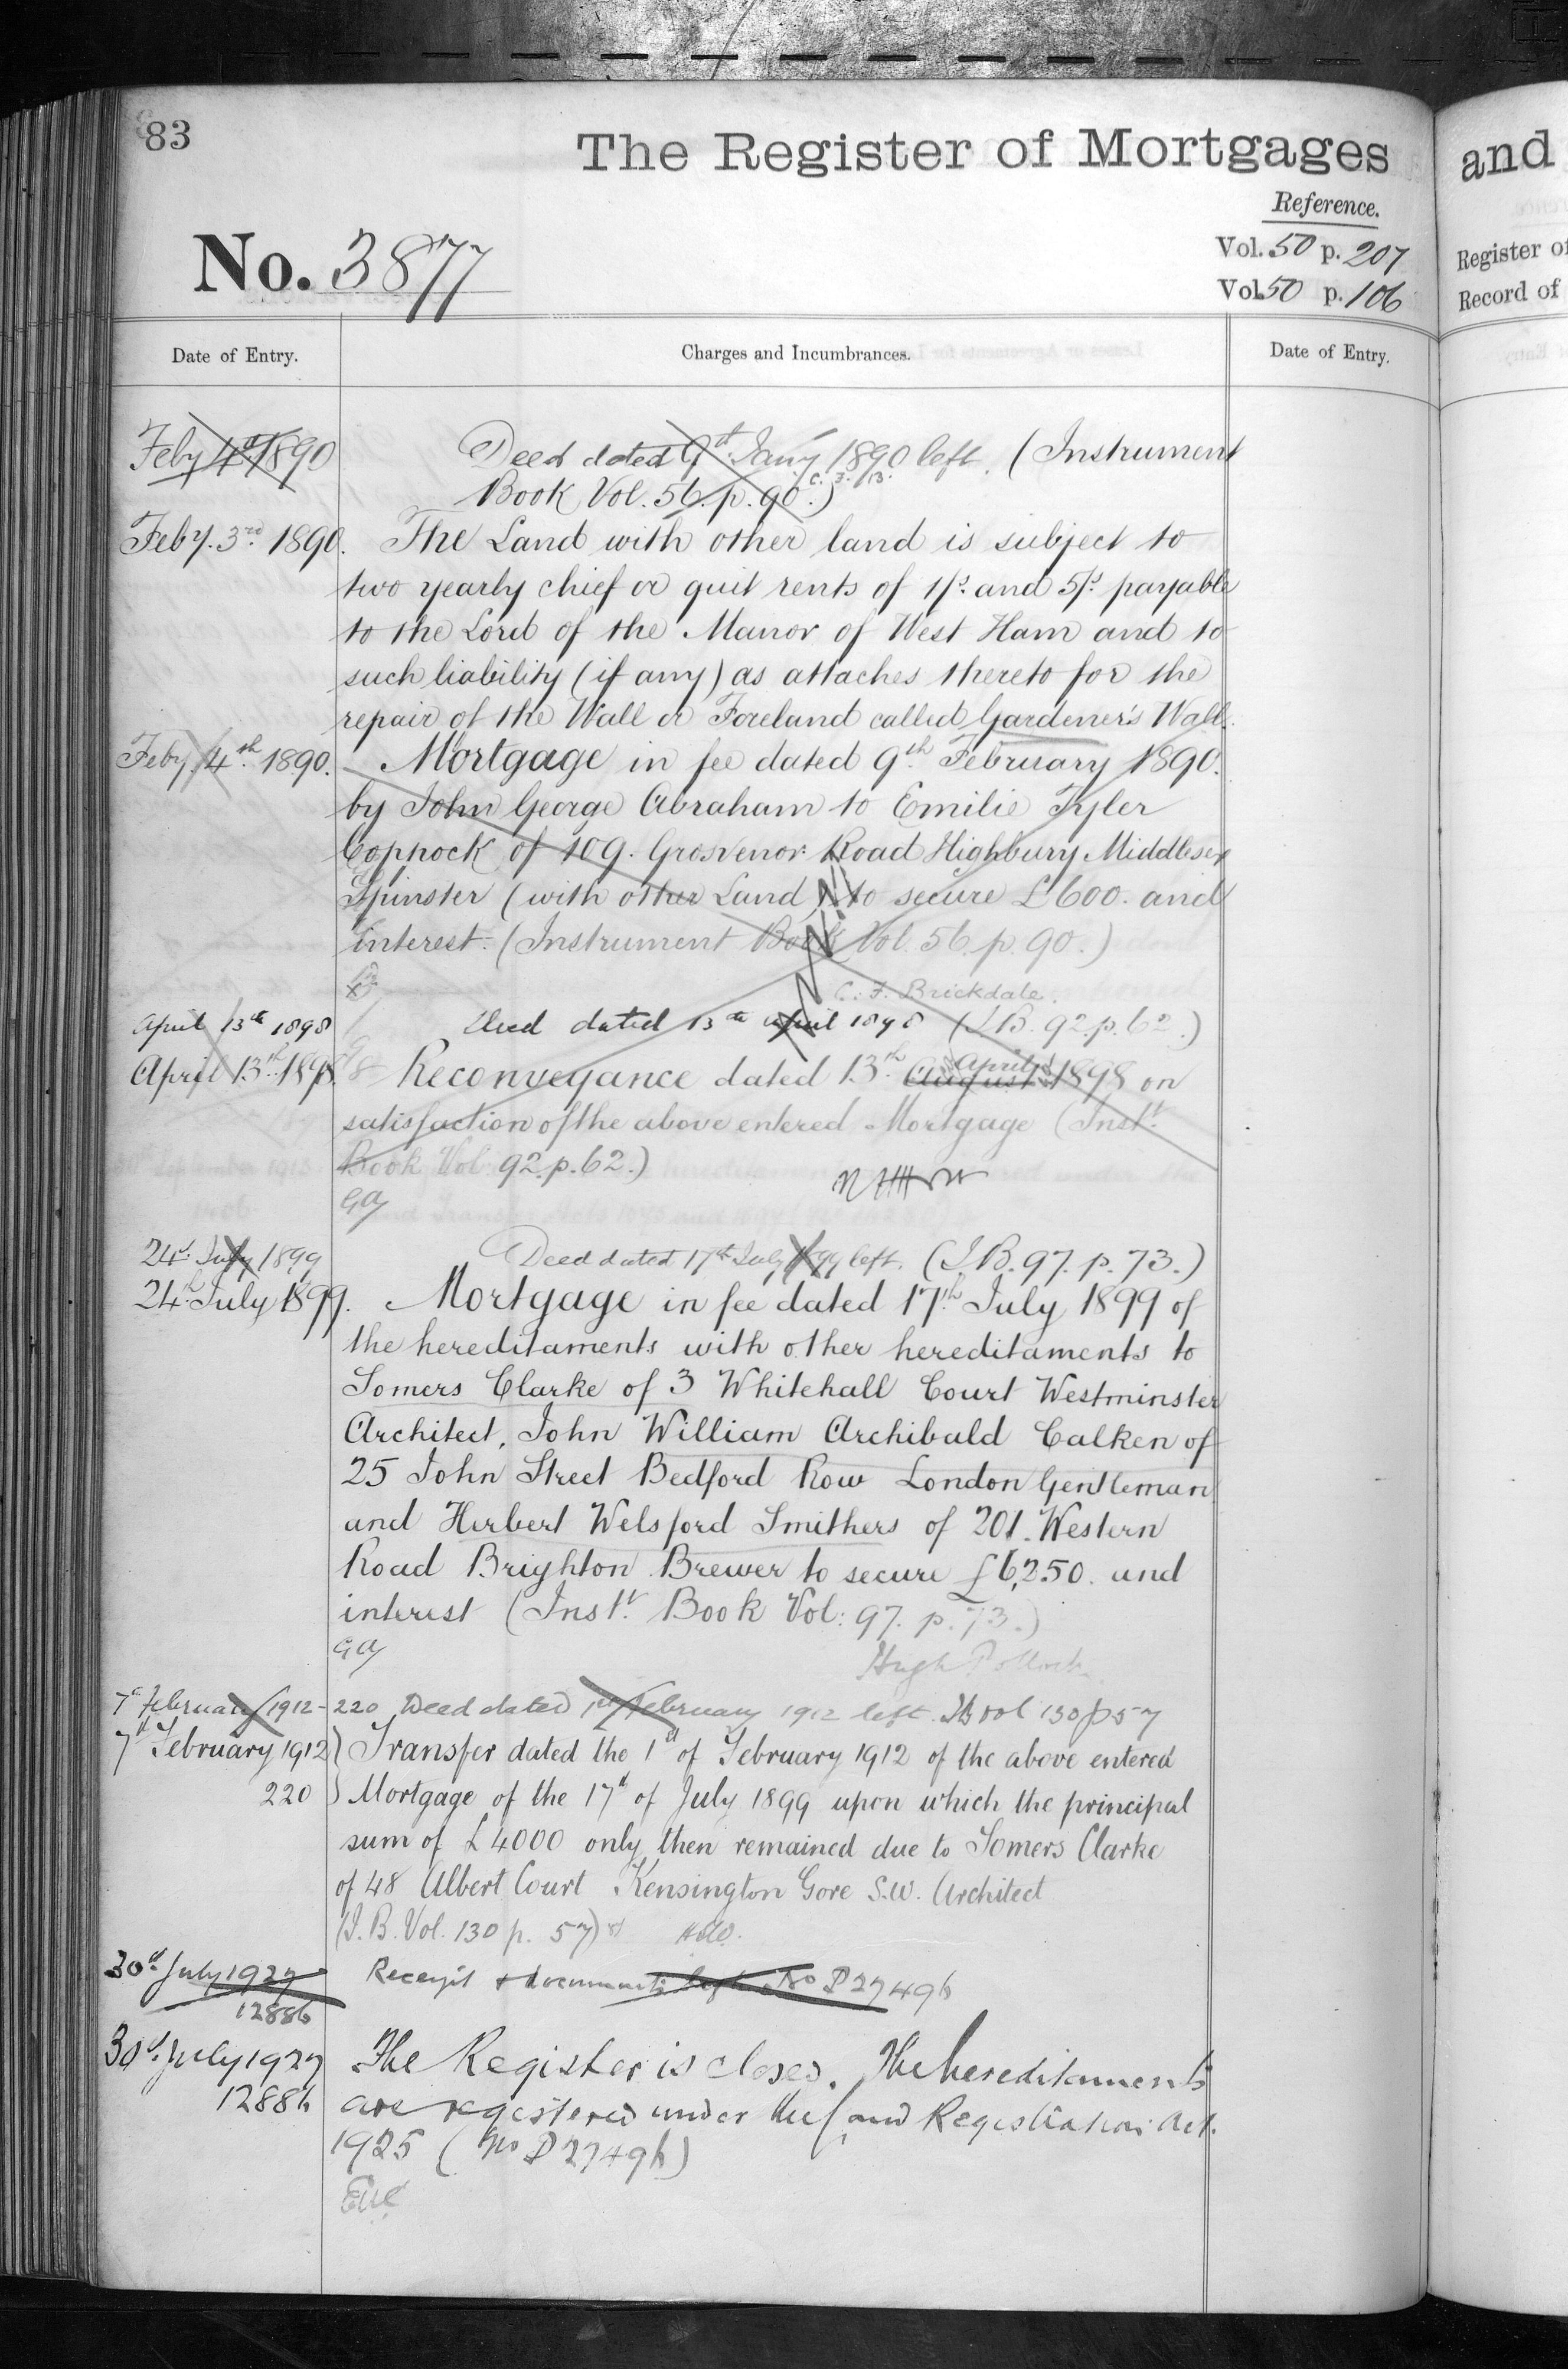 83
The Register of Mortgages
and
Reference.
No. 3877
Vol. 50 p. 207
Vol. 50 p. 106
Register of
Record of
Date of Entry.
Charges and Incumbrances.
Date of Entry.
Feby 4th 1890
Deed dated 9th Jany 1890 left. (Instrument
Book Vol. 56. p. 90.) C. F. B.
Feby. 3rd 1890.
The Land with other land is subject to
two yearly chief or quit rents of 1/s. and 5/s. payable
to the Lord of the Manor of West Ham and to
such liability (if any) as attaches thereto for the
repair of the Wall or Foreland called Gardener's Wall.
Feby. 4th 1890.
Mortgage in fee dated 9th February 1890.
by John George Abraham to Emilie Tyler
Coppock of 109. Grosvenor Road Highbury Middlesex
Spinster (with other Land) to secure £600. and
Interest. (Instrument Book Vol. 56. p. 90.)
C. F. Brickdale.
April 13th 1898
Deed dated 13th April 1898 (I.B. 92. p. 62.)
April 13th 1898.
Reconveyance dated 13th August April 1898 on
satisfaction of the above entered Mortgage (Inst.t
Book Vol: 92. p. 62.)
GA
24th July 1899
Deed dated 17th July 1899 left. (I.B. 97. p. 73.)
24th July 1899.
Mortgage in fee dated 17th July 1899 of
the hereditaments with other hereditaments to
Somers Clarke of 3 Whitehall Court Westminster
Architect, John William Archibald Calken of
25 John Street Bedford Row London Gentleman
and Herbert Welsford Smithers of 201. Western
Road Brighton Brewer to secure £6,250. and
interest (Inst.t Book Vol: 97. p. 73.)
GA
Hugh Pollock
7th February 1912 - 220 Deed dated 1st February 1912 left. IB vol 130 p 57
7th February 1912
220
Transfer dated the 1st of February 1912 of the above entered
Mortgage of the 17th of July 1899 upon which the principal
sum of £4000 only then remained due to Somers Clarke
of 48 Albert Court Kensington Gore S.W. Architect
(I.B. Vol. 130 p. 57)
30th July 1927
12886
Receipt & documents left No P 27496
30th July 1927
12886
The Register is closed. The hereditaments
are registered under the Land Registration Act.
1925 (No P 27496)